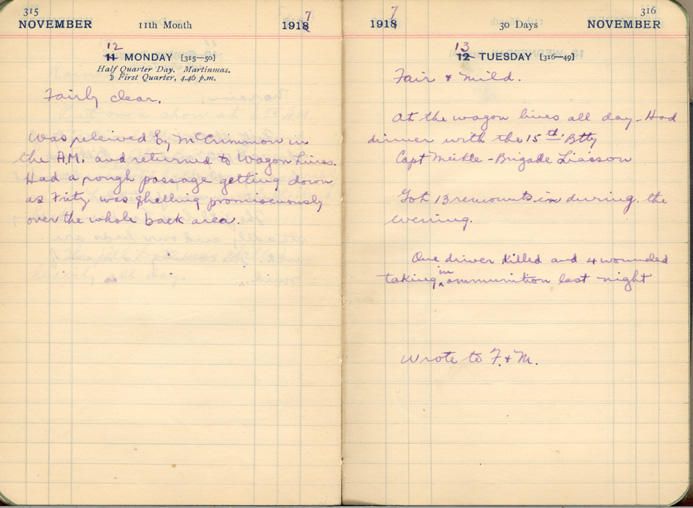 315
NOVEMBER 11th Month 1918 7
12
11 MONDAY [315—50]
Half Quarter Day. Martinmas.
☽ First Quarter, 4.46 p.m.
Fairly clear.
Was releived by McCrimmon in
the A.M. and returned to Wagon Lines.
Had a rough passage getting down
as Fritz was shelling promiscuously
over the whole back area.
316
1918 7 30 Days NOVEMBER
13
12 TUESDAY [316—49]
Fair & mild.
At the wagon lines all day - Had
dinner with the 15th Btty
Capt - Brigade Liasson
Got 13 remounts in during the
evening.
One driver killed and 4 wounded
taking in ammunition last night
Wrote to F. & M.